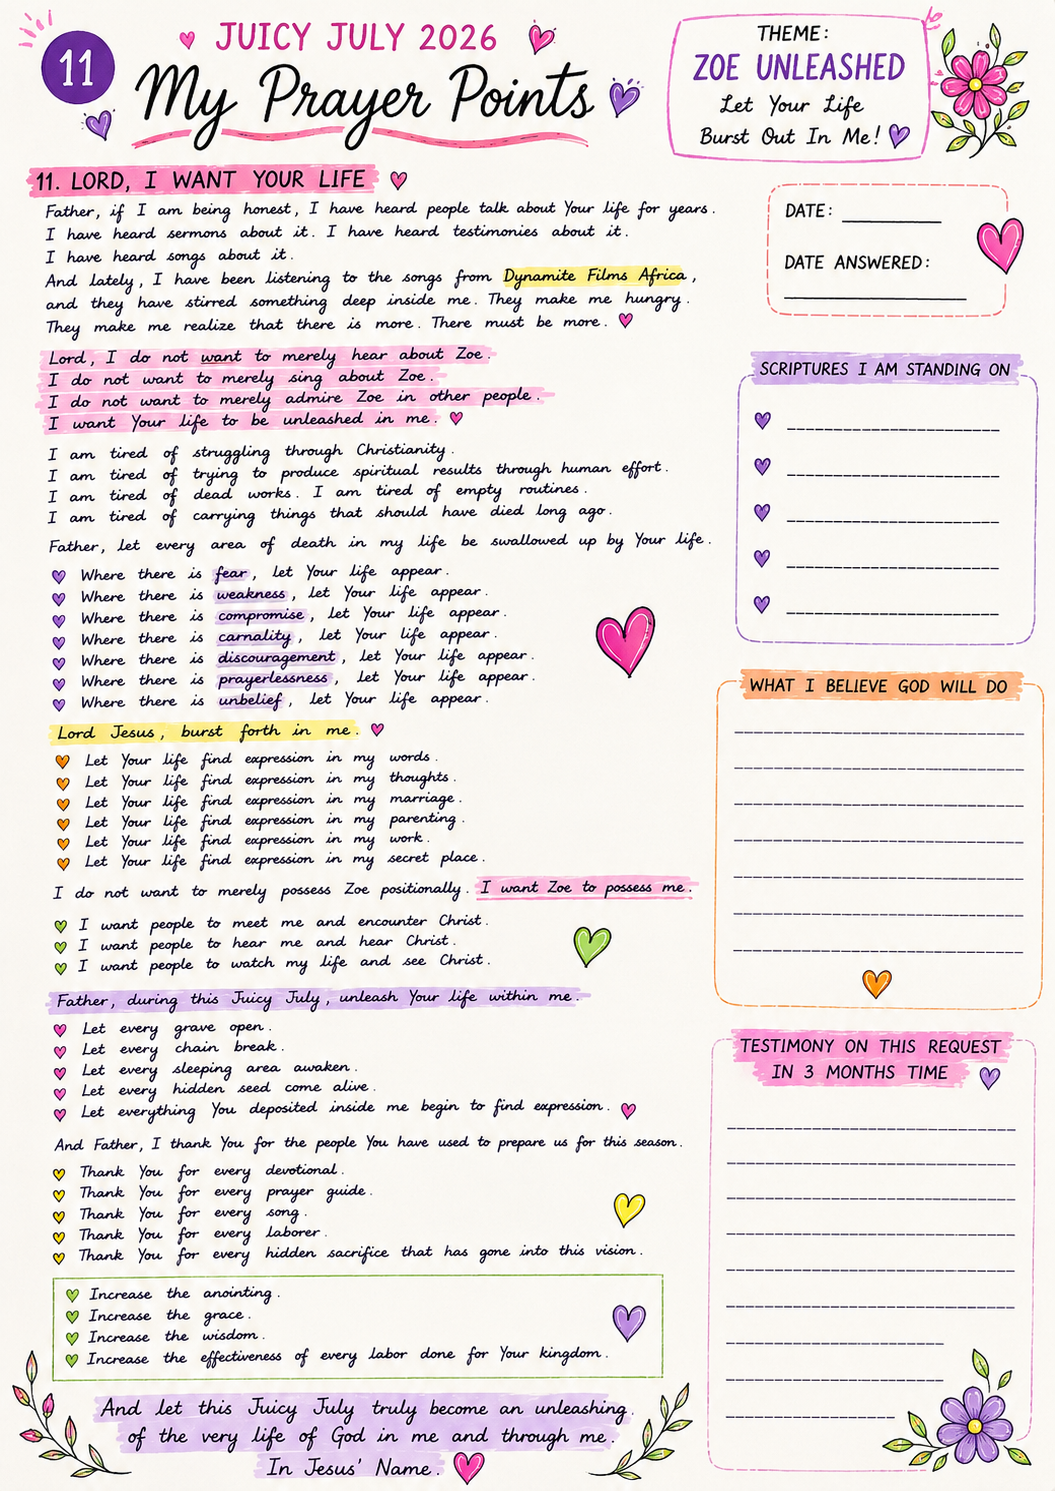 11
JUICY JULY 2026
My Prayer Points
THEME:
ZOE UNLEASHED
Let Your Life
Burst Out In Me!
11. LORD, I WANT YOUR LIFE
Father, if I am being honest, I have heard people talk about Your life for years.
I have heard sermons about it. I have heard testimonies about it.
I have heard songs about it.
And lately, I have been listening to the songs from Dynamite Films Africa,
and they have stirred something deep inside me. They make me hungry.
They make me realize that there is more. There must be more.
Lord, I do not want to merely hear about Zoe.
I do not want to merely sing about Zoe.
I do not want to merely admire Zoe in other people.
I want Your life to be unleashed in me.
I am tired of struggling through Christianity.
I am tired of trying to produce spiritual results through human effort.
I am tired of dead works. I am tired of empty routines.
I am tired of carrying things that should have died long ago.
Father, let every area of death in my life be swallowed up by Your life.
Where there is fear, let Your life appear.
Where there is weakness, let Your life appear.
Where there is compromise, let Your life appear.
Where there is carnality, let Your life appear.
Where there is discouragement, let Your life appear.
Where there is prayerlessness, let Your life appear.
Where there is unbelief, let Your life appear.
Lord Jesus, burst forth in me.
Let Your life find expression in my words.
Let Your life find expression in my thoughts.
Let Your life find expression in my marriage.
Let Your life find expression in my parenting.
Let Your life find expression in my work.
Let Your life find expression in my secret place.
I do not want to merely possess Zoe positionally. I want Zoe to possess me.
I want people to meet me and encounter Christ.
I want people to hear me and hear Christ.
I want people to watch my life and see Christ.
Father, during this Juicy July, unleash Your life within me.
Let every grave open.
Let every chain break.
Let every sleeping area awaken.
Let every hidden seed come alive.
Let everything You deposited inside me begin to find expression.
And Father, I thank You for the people You have used to prepare us for this season.
Thank You for every devotional.
Thank You for every prayer guide.
Thank You for every song.
Thank You for every laborer.
Thank You for every hidden sacrifice that has gone into this vision.
Increase the anointing.
Increase the grace.
Increase the wisdom.
Increase the effectiveness of every labor done for Your kingdom.
And let this Juicy July truly become an unleashing
of the very life of God in me and through me.
In Jesus' Name.
DATE:
DATE ANSWERED:
SCRIPTURES I AM STANDING ON
WHAT I BELIEVE GOD WILL DO
TESTIMONY ON THIS REQUEST
IN 3 MONTHS TIME